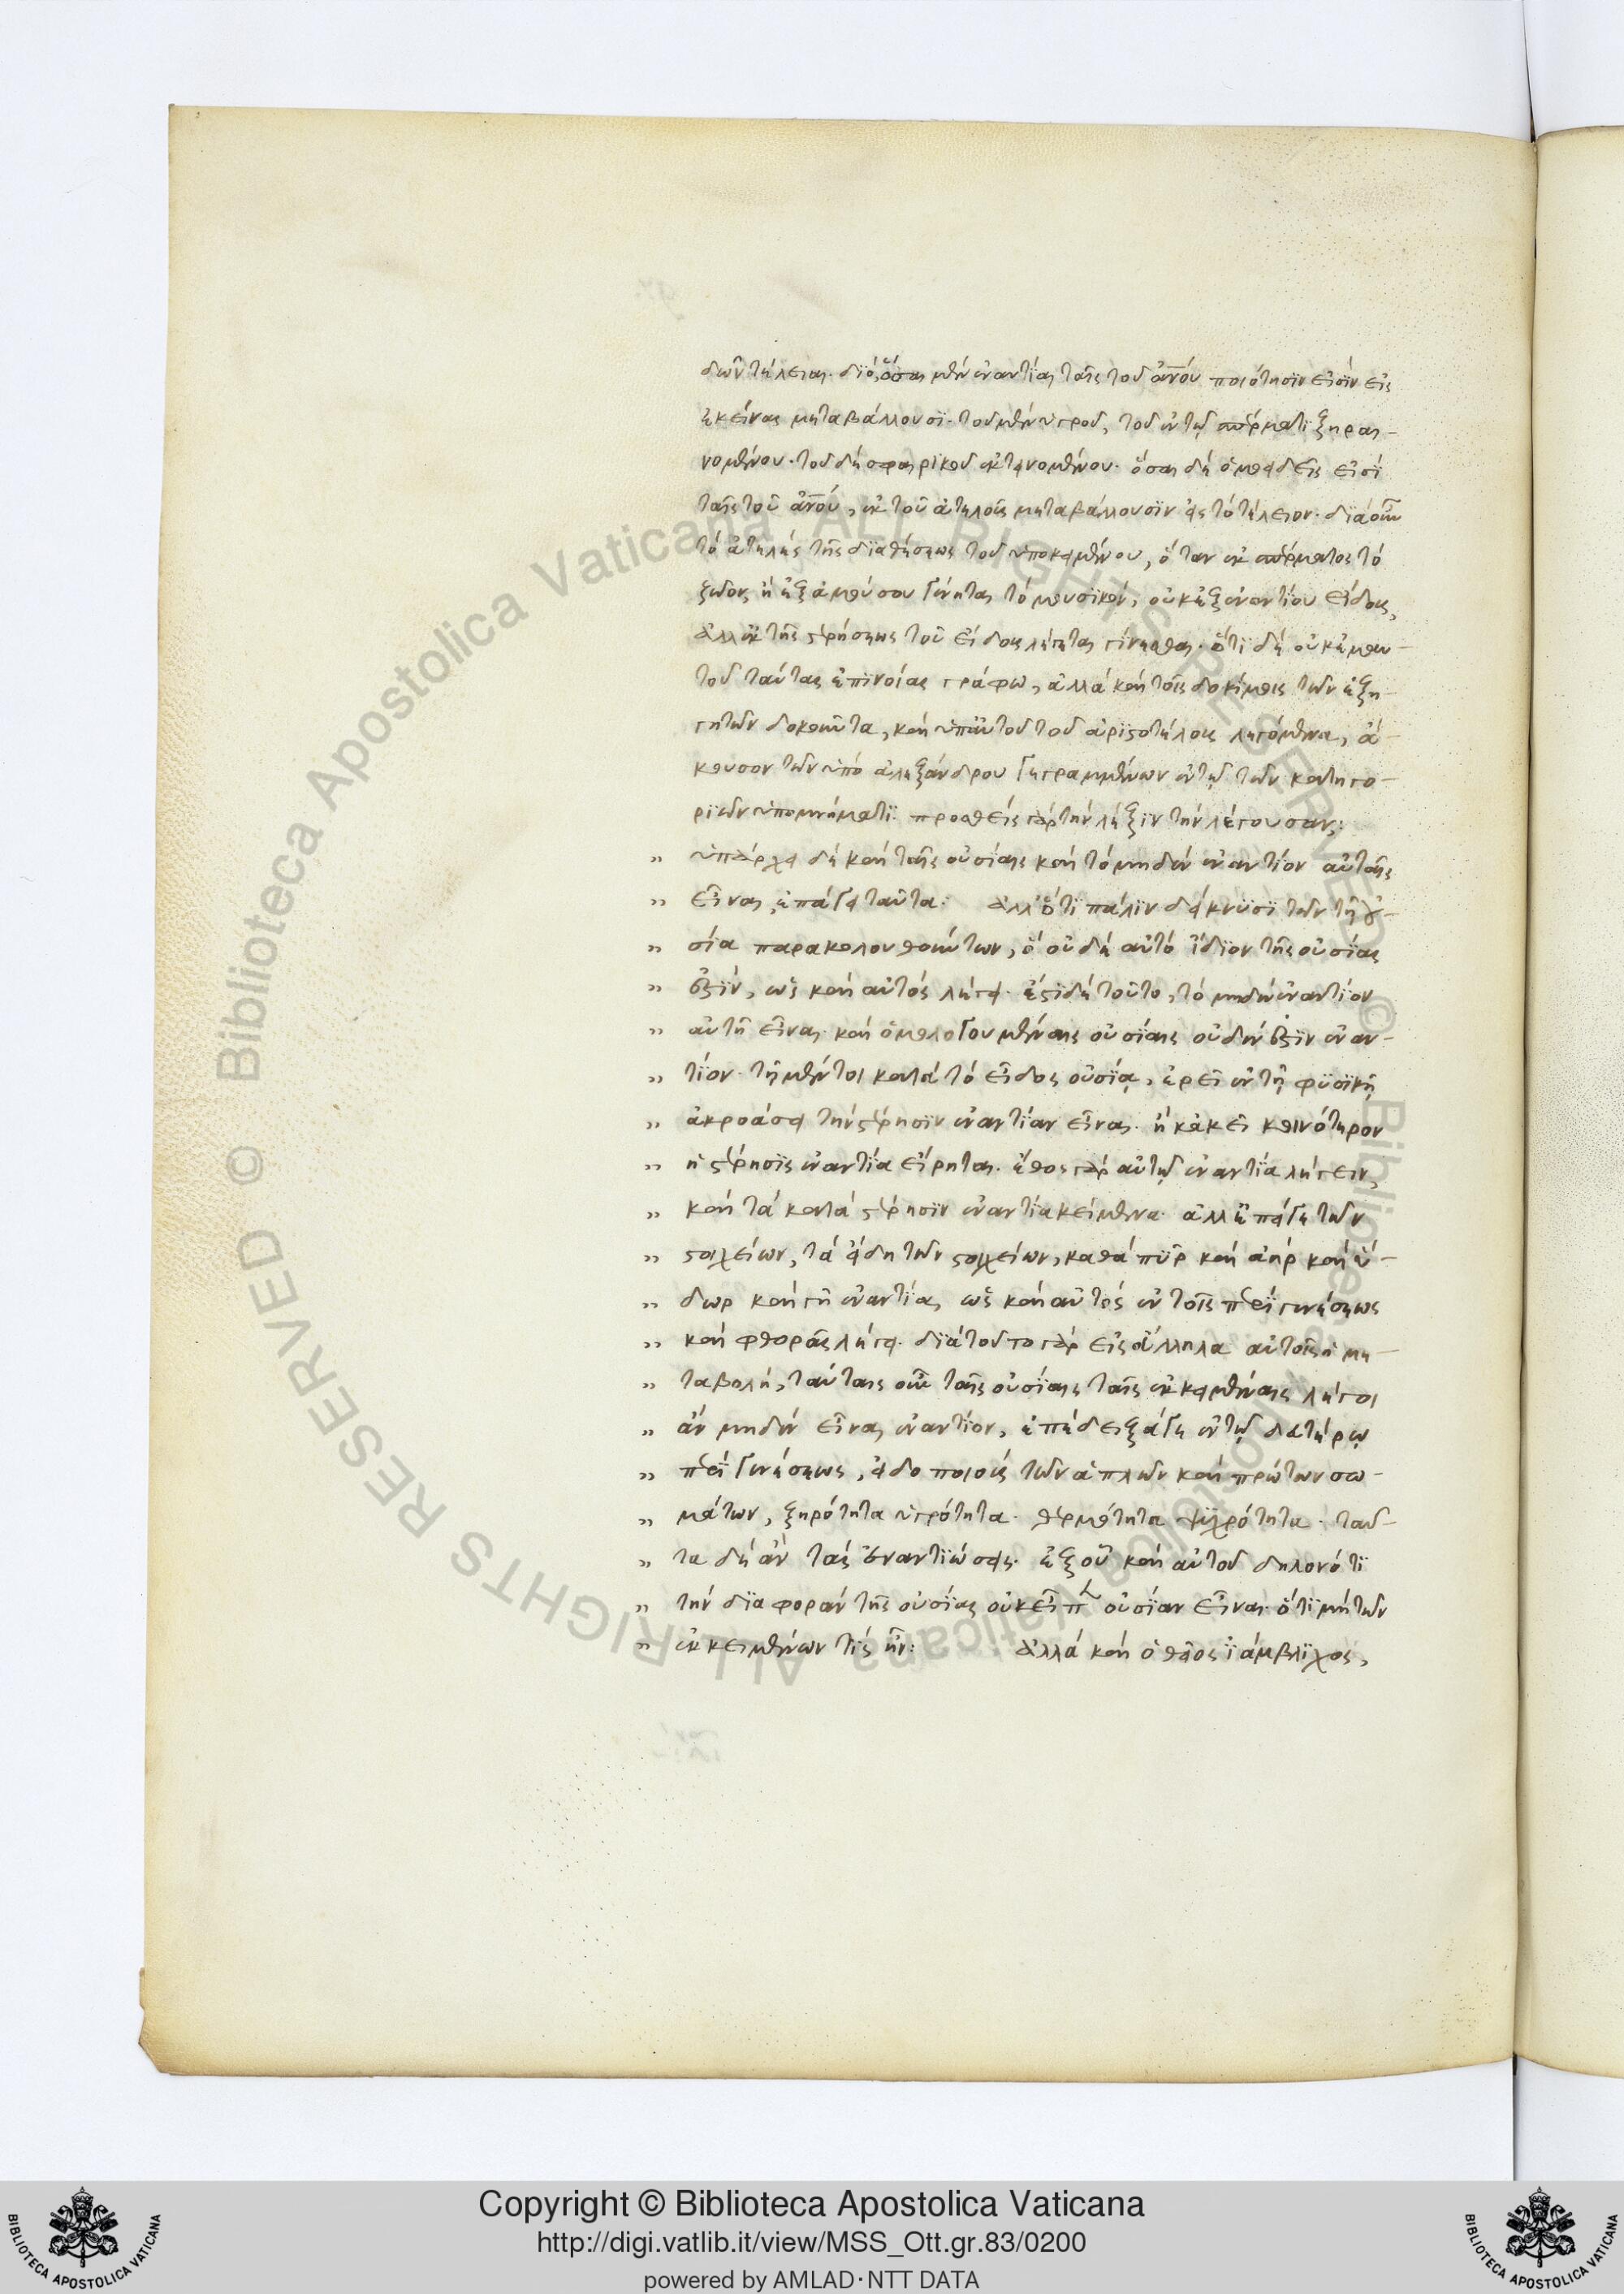 δῶν τέλειαι. διὸ, ὅσαι μὲν ἐναντίαι ταῖς τοῦ ἀνοῦ ποιότησϊν εἰσὶν εἰς
ἐκείνας μεταβάλλουσϊ. τοῦ μὲν ὑγροῦ, τοῦ ἐν τῷ σπέρματι ξηραι-
νομένου. τοῦ δὲ σφαιρϊκοῦ ἐκτεινομένου. ὅσαι δὲ ὁμοειδεῖς εἰσὶ
ταῖς τοῦ ἀνοῦ, ἐκ τοῦ ἀτελοῦς μεταβάλλουσϊν εἰς τὸ τέλειον. δϊὰ οὖν
τὸ ἀτελὲς τῆς δϊαθέσεως τοῦ ὑποκειμένου, ὅταν ἐκ σπέρματος τὸ
ζῶον, ἢ ἐξ ἀμούσου γένηται τὸ μουσϊκὸν, οὐκ ἐξ ἐναντίου εἴδους,
ἀλλ' ἐκ τῆς στερήσεως τοῦ εἴδους λέγεται γίνεσθαι. ὅτϊ δὲ οὐκ ἐμαυ-
τοῦ ταύτας ἐπϊνοίας γράφω, ἀλλὰ καὶ τοῖς δοκίμοις τῶν ἐξη-
γητῶν δοκοῦντα, καὶ ὑπ' αὐτοῦ τοῦ ἀρϊστοτέλους λεγόμενα, ἄ-
κουσον τῶν ὑπὸ ἀλεξάνδρου γεγραμμένων ἐν τῷ τῶν κατηγο-
ρϊῶν ὑπομνήματϊ. προσθεὶς γὰρ τὴν λέξϊν τὴν λέγουσαν:
„ ὑπάρχει δὲ καὶ ταῖς οὐσίαις καὶ τὸ μηδὲν ἐναντίον αὐταῖς
„ εἶναι, ἐπάγει ταῦτα: ἄλλό τϊ πάλϊν δείκνυσϊ τῶν τῇ οὐ-
„ σία παρακολουθούντων, ὃ οὐδὲ αὐτὸ ἴδϊον τῆς οὐσίας
„ ἐστϊν, ὡς καὶ αὐτὸς λέγει. ἔστϊ δὲ τοῦτο, τὸ μηδὲν ἐναντίον
„ αὐτῇ εἶναι. καὶ ὁμολογουμέναις οὐσίαις οὐδέν ἐστϊν ἐναν-
„ τίον. τῇ μέντοι κατὰ τὸ εἶδος οὐσίᾳ, ἐρεῖ ἐν τῇ φυσϊκῇ
„ ἀκροάσει τὴν στέρησϊν ἐναντίαν εἶναι. ἢ κἀκεῖ κοινότερον
„ ἡ στέρησϊς ἐναντία εἴρηται. ἔθος γὰρ αὐτῷ ἐναντία λέγειν,
„ καὶ τὰ κατὰ στέρησϊν ἐναντία κείμενα. ἀλλ' ἔπειγε τῶν
„ στοιχείων, τὰ εἴδη τῶν στοιχείων, καθὰ πῦρ καὶ ἀὴρ καὶ ὕ-
„ δωρ καὶ γῆ ἐναντία, ὡς καὶ αὐτὸς ἐν τοῖς περϊ γενέσεως
„ καὶ φθορᾶς λέγει. δϊὰ τοῦτο γὰρ εἰς ἄλληλα αὐτοῖς ἡ με-
„ ταβολὴ, ταύταις οὖν ταῖς οὐσίαις ταῖς ἐκκειμέναις λέγοι
„ ἂν μηδὲν εἶναι ἐναντίον, ἐπεὶ δειξάγε ἐν τῷ δευτέρῳ
„ περϊ γενέσεως, εἰδοποιοὺς τῶν ἁπλῶν καὶ πρώτων σω-
„ μάτων, ξηρότητα ὑγρότητα. θερμότητα ψϋχρότητα. ταῦ-
„ τα δὲ ἂν ταὶ ἐναντϊώσεις. ἐξ οὗ καὶ αὐτοῦ δηλονότϊ
„ τὴν δϊαφορὰν τῆς οὐσίας οὐκ εἶπ οὐσίαν εἶναι. ὅτϊ μὴ τῶν
„ ἐκκειμένων τὶς ἦν: ἀλλὰ καὶ ὁ θεῖος ϊάμβλϊχος,
© Biblioteca Apostolica Vaticana ALL RIGHTS RESERVED © Biblioteca Apostolica Vaticana ALL RIGHTS RESERVED
Copyright © Biblioteca Apostolica Vaticana
http://digi.vatlib.it/view/MSS_Ott.gr.83/0200
powered by AMLAD·NTT DATA
BIBLIOTECA APOSTOLICA VATICANA
BIBLIOTECA APOSTOLICA VATICANA